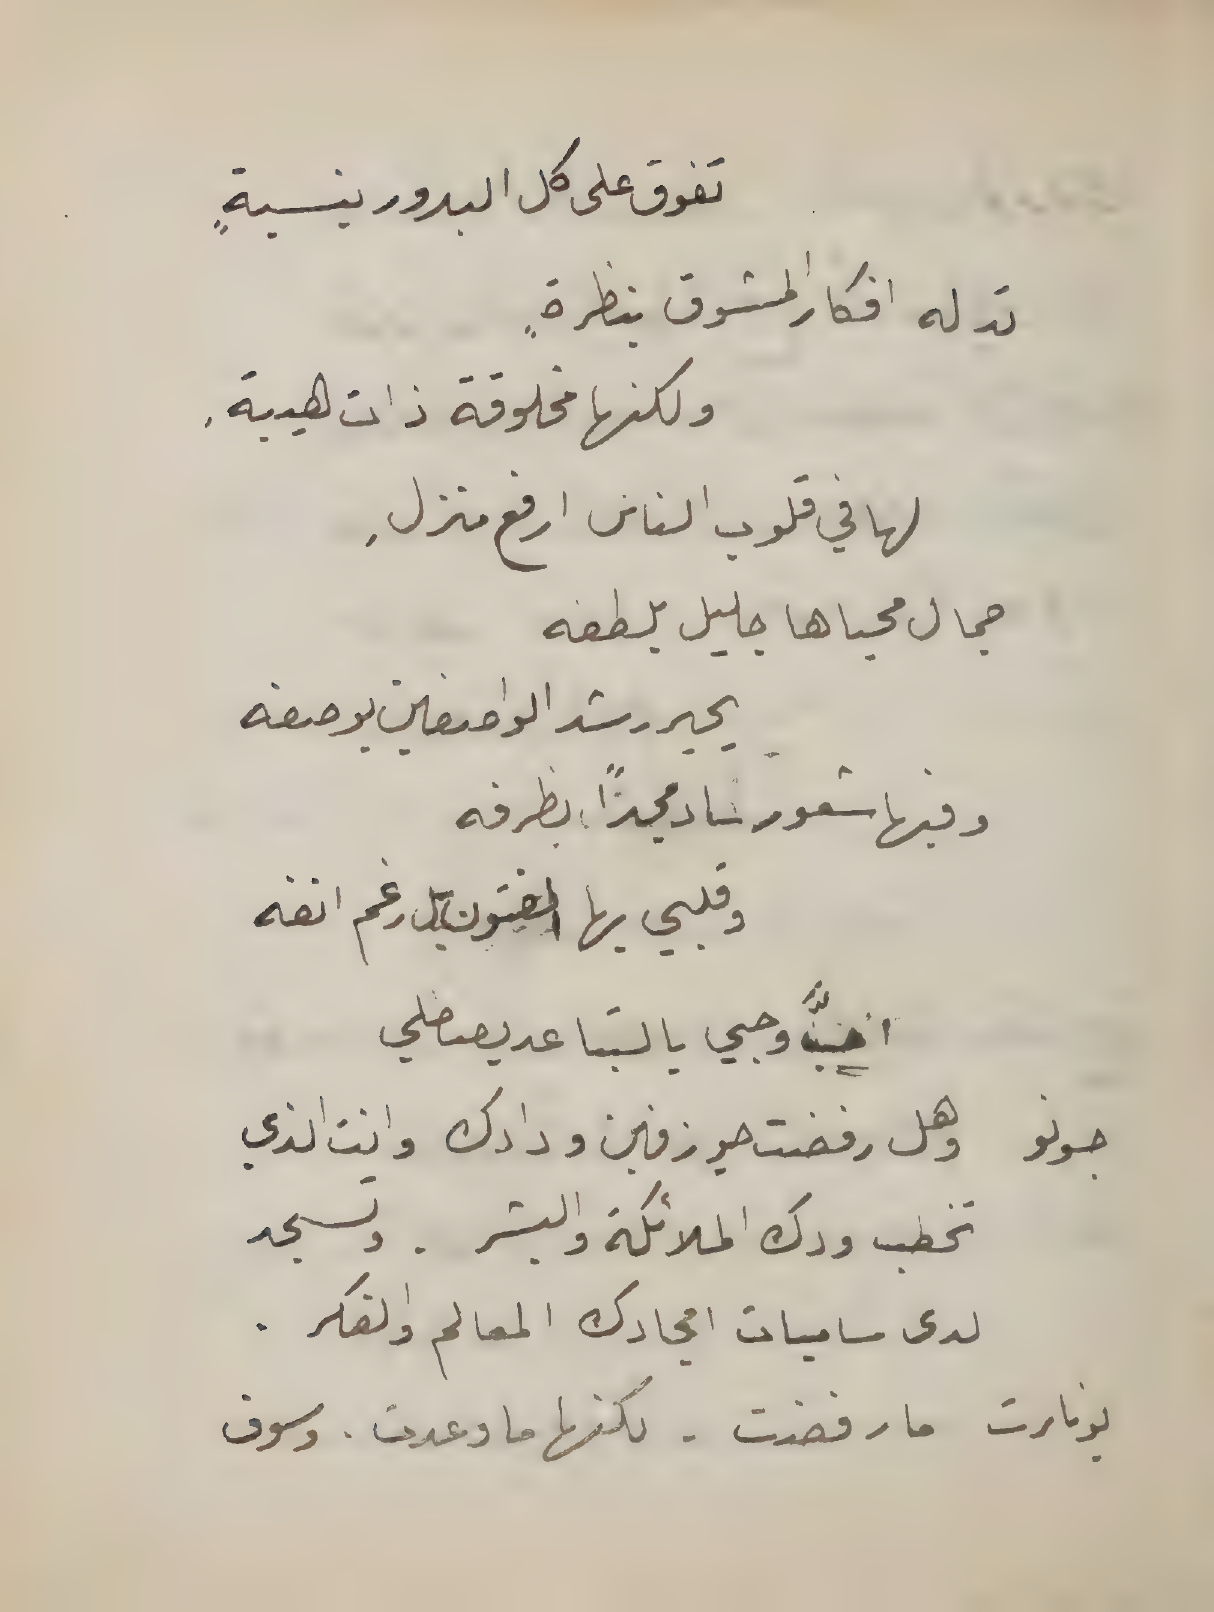 تفوق على كل البدور بنسبةٍ
تدله افكار المشوق بنظرةٍ
ولكنها مخلوقة ذات هيبة،
لها في قلوب الناس ارفع منزل،
جمال محياها جليل بلطفه
يحير رشد الواصفين بوصفه
وفيها شعور ساد مجدًا بظرفه
وقلبي بها المفتون بل رغم انفه
وحبي بالتباعد يصطلي
جونو وهل رفضت جوزفين ودادك وانت الذي
تخطب ودك الملائكة والبشر . وتسجد
لدى ساميات امجادك المعالم والفكر .
بونابرت ما رفضت . لكنها ما وعدت . وسوف